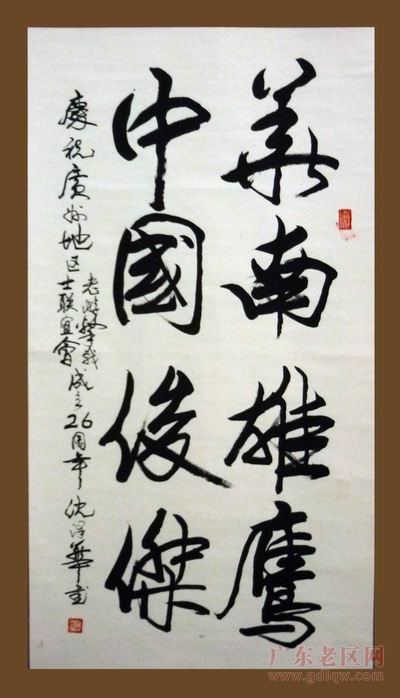 華南雄鷹
中國俊傑
慶祝廣州地区老游擊战士联宜會成立26周年 沈泽華书
广东老区网
www.gdlqw.com